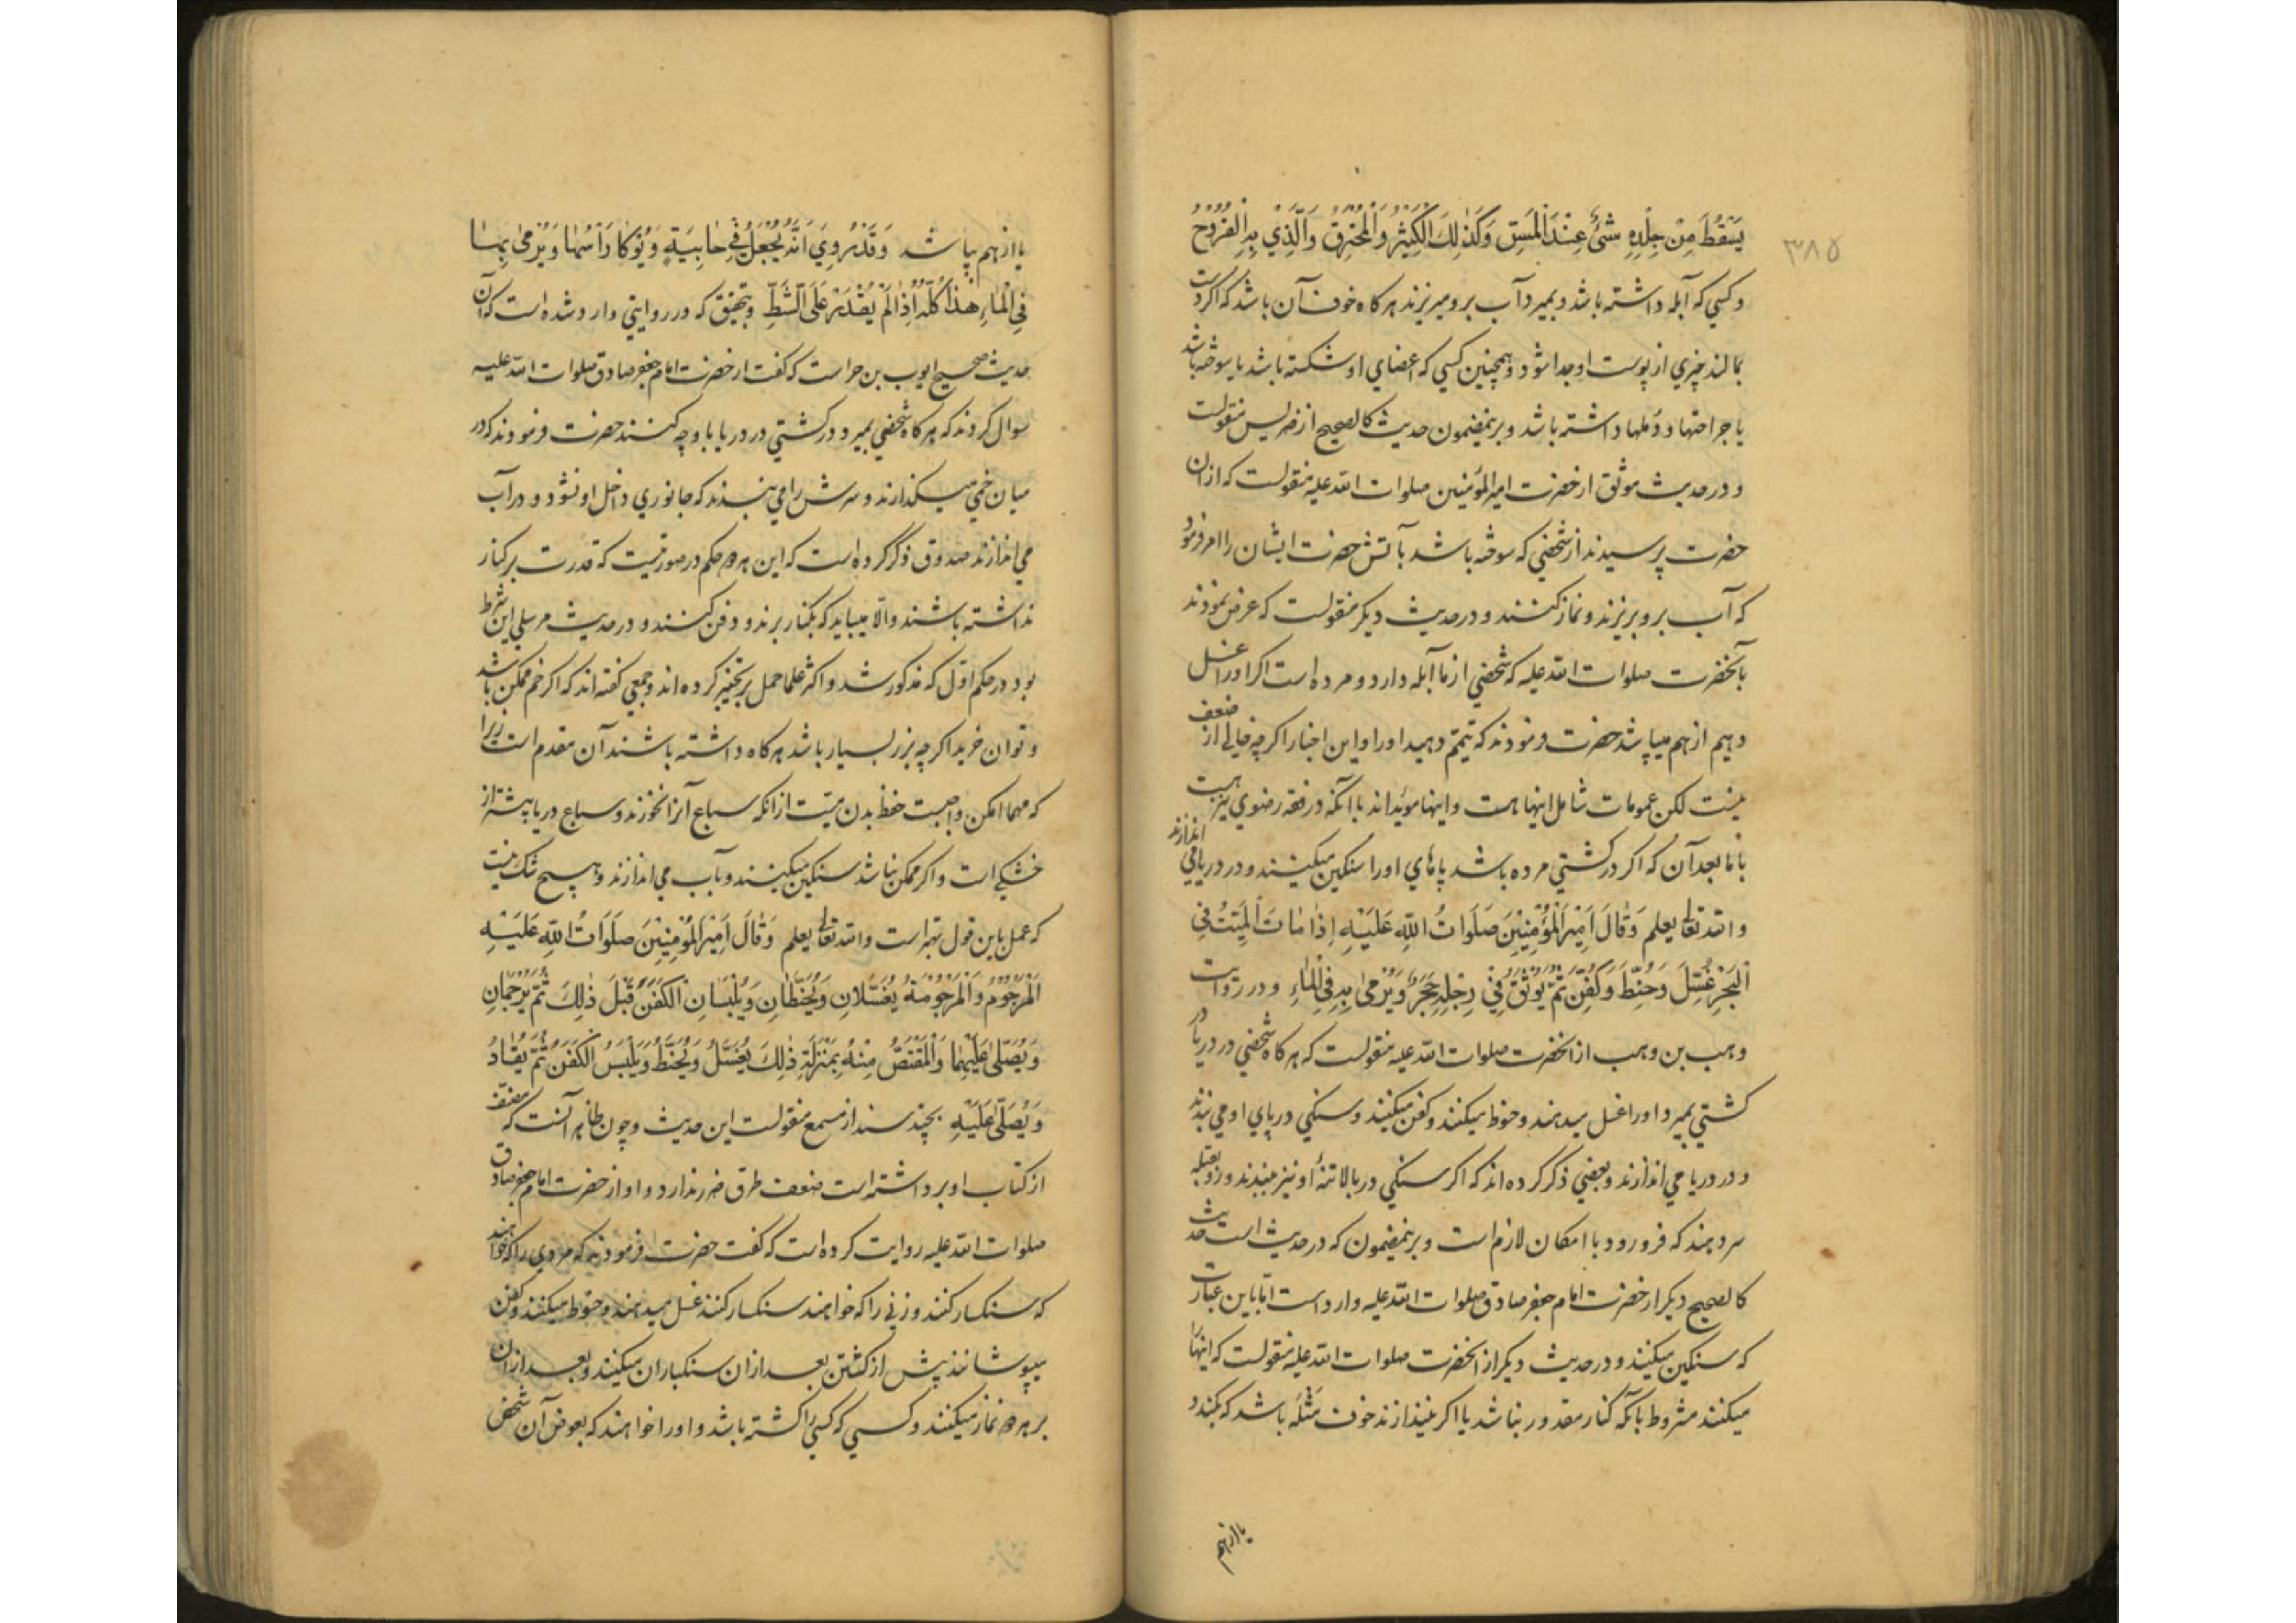 ۳۸۵
يَسْقُطَ مِنْ جِلْدِهِ شَيْءٌ عِنْدَ الْمَسِّ وَكَذٰلِكَ الْكَسِيرُ وَالْمُحْتَرِقُ وَالَّذِي بِهِ الْقُرُوحُ
و كسي كه آبله داشته باشد و بميرد آب بر و ميريزند هركاه خوف آن باشد كه اكر دست
بمالند چيزي از پوست او جدا شود و همچنين كسي كه اعضاي او شكسته باشد يا سوخته باشد
يا جراحتها و دملها داشته باشد و بر ينمضمون حديث كالصحيح از ضريس منقولست
و در حديث موثق از حضرت اميرالمؤمنين صلوات الله عليه منقولست كه از ان
حضرت پرسيدند از شخصي كه سوخته باشد بآتش حضرت ايشان را امر فرمود
كه آب برو بريزند و نماز كنند و در حديث ديكر منقولست كه عرض نمودند
بآنحضرت صلوات الله عليه كه شخصي از ما آبله دارد و مرده است اكر اورا غسل
دهيم از هم ميپاشد حضرت فرمودند كه تيمم دهيد اورا و اين اخبار اكرچه خالي از ضعف
نيست لكن عمومات شامل اينها هست و اينها مويداند با آنكه در فقه رضوي نيز هست
با ما بعد آن كه اكر در كشتي مرده باشد پاهاي اورا سنكين ميكنند و در دريا مي اندازند
و الله تعالي يعلم وَقَالَ اَمِيرُ الْمُؤْمِنِينَ صَلَوَاتُ اللّٰهِ عَلَيْهِ اِذٰا مٰاتَ الْمَيِّتُ فِي
الْبَحْرِ غُسِّلَ وَحُنِّطَ وَكُفِّنَ ثُمَّ يُوثَقُ فِي رِجْلِهِ حَجَرٌ وَيُرْمٰى بِهِ فِي الْمٰاءِ و در روايت
وهب بن وهب از انحضرت صلوات الله عليه منقولست كه هركاه شخصي در دريا در
كشتي بميرد اورا غسل ميدهند و حنوط ميكنند و كفن ميكنند و سنكي در پاي او مي بندند
و در دريا مي اندازند و بعضي ذكر كرده اند كه اكر سنكي در بالا تنه او نيز ببندند و رو بقبله
سر دهند كه فرو رود با امكان لازم است و بر ينمضمون كه در حديث است حديث
كالصحيح ديكر از حضرت امام جعفر صادق صلوات الله عليه وارد است اما باين عبارت
كه سنكين ميكنند و در حديث ديكر از انحضرت صلوات الله عليه منقولست كه اينها را
ميكنند مشروط بآنكه كنار مقدور نباشد يا اكر نيندازند خوف مثله باشد كه بكندد
يا از هم
يا از هم بپاشد وَقَدْ رُوِيَ اَنَّهُ يُجْعَلُ فِي خٰابِيَةٍ وَيُوكٰأُ رَأْسُهٰا وَيُرْمٰى بِهٰا
فِي الْمٰاءِ هٰذٰا كُلُّهُ اِذٰا لَمْ يُقْدَرْ عَلَى الشَّطِّ و بتحقيق كه در روايتي وارد شده است كه آن
حديث صحيح ايوب بن حر است كه كفت از حضرت امام جعفر صادق صلوات الله عليه
سوال كردند كه هركاه شخصي بميرد در كشتي در دريا با و چه كنند حضرت فرمودند كه در
ميان خمي ميكذارند و سرش را مي بندند كه جانوري داخل او نشود و در آب
مي اندازند صدوق ذكر كرده است كه اين هر دو حكم در صورتيست كه قدرت بر كنار
نداشته باشند و الا ميبايد كه بكنار برند و دفن كنند و در حديث مرسلي اين شرط
بود در حكم اول كه مذكور شد و اكثر علما حمل بر تخيير كرده اند و جمعي كفته اند كه اكر خم ممكن باشد
و توان خريد اكرچه بزر بسيار باشد هركاه داشته باشند آن مقدم است زيرا
كه مهما امكن واجبست حفظ بدن ميت از آنكه سباع آنرا نخورند و سباع دريا بيشتر از
خشكي است و اكر ممكن نباشد سنكين ميكنند و بآب مي اندازند و هيچ شك نيست
كه عمل باين قول بهتر است و الله تعالي يعلم وَقَالَ اَمِيرُ الْمُؤْمِنِينَ صَلَوَاتُ اللّٰهِ عَلَيْهِ
الْمَرْجُومُ وَالْمَرْجُومَةُ يُغَسَّلَانِ وَيُحَنَّطَانِ وَيُلْبَسَانِ الْكَفَنَ قَبْلَ ذٰلِكَ ثُمَّ يُرْجَمَانِ
وَيُصَلّٰى عَلَيْهِمٰا وَالْمُقْتَصُّ مِنْهُ بِمَنْزِلَةِ ذٰلِكَ يُغَسَّلُ وَيُحَنَّطُ وَيُلْبَسُ الْكَفَنَ ثُمَّ يُقٰادُ
وَيُصَلّٰى عَلَيْهِ بچند سند از مسمع منقولست اين حديث و چون ظاهر آنست كه مصنف
از كتاب او برداشته است ضعف طرق ضرر ندارد و او از حضرت امام جعفر صادق
صلوات الله عليه روايت كرده است كه كفت حضرت فرمودند كه مردي را كه خواهند
كه سنكسار كنند و زني را كه خواهند سنكسار كنند غسل ميدهند و حنوط ميكنند و كفن
ميپوشانند پيش از كشتن بعد از ان سنكباران ميكنند و بعد از ان
بر هر دو نماز ميكنند و كسي كه كسي را كشته باشد و اورا خواهند كه بعوض آن شخص